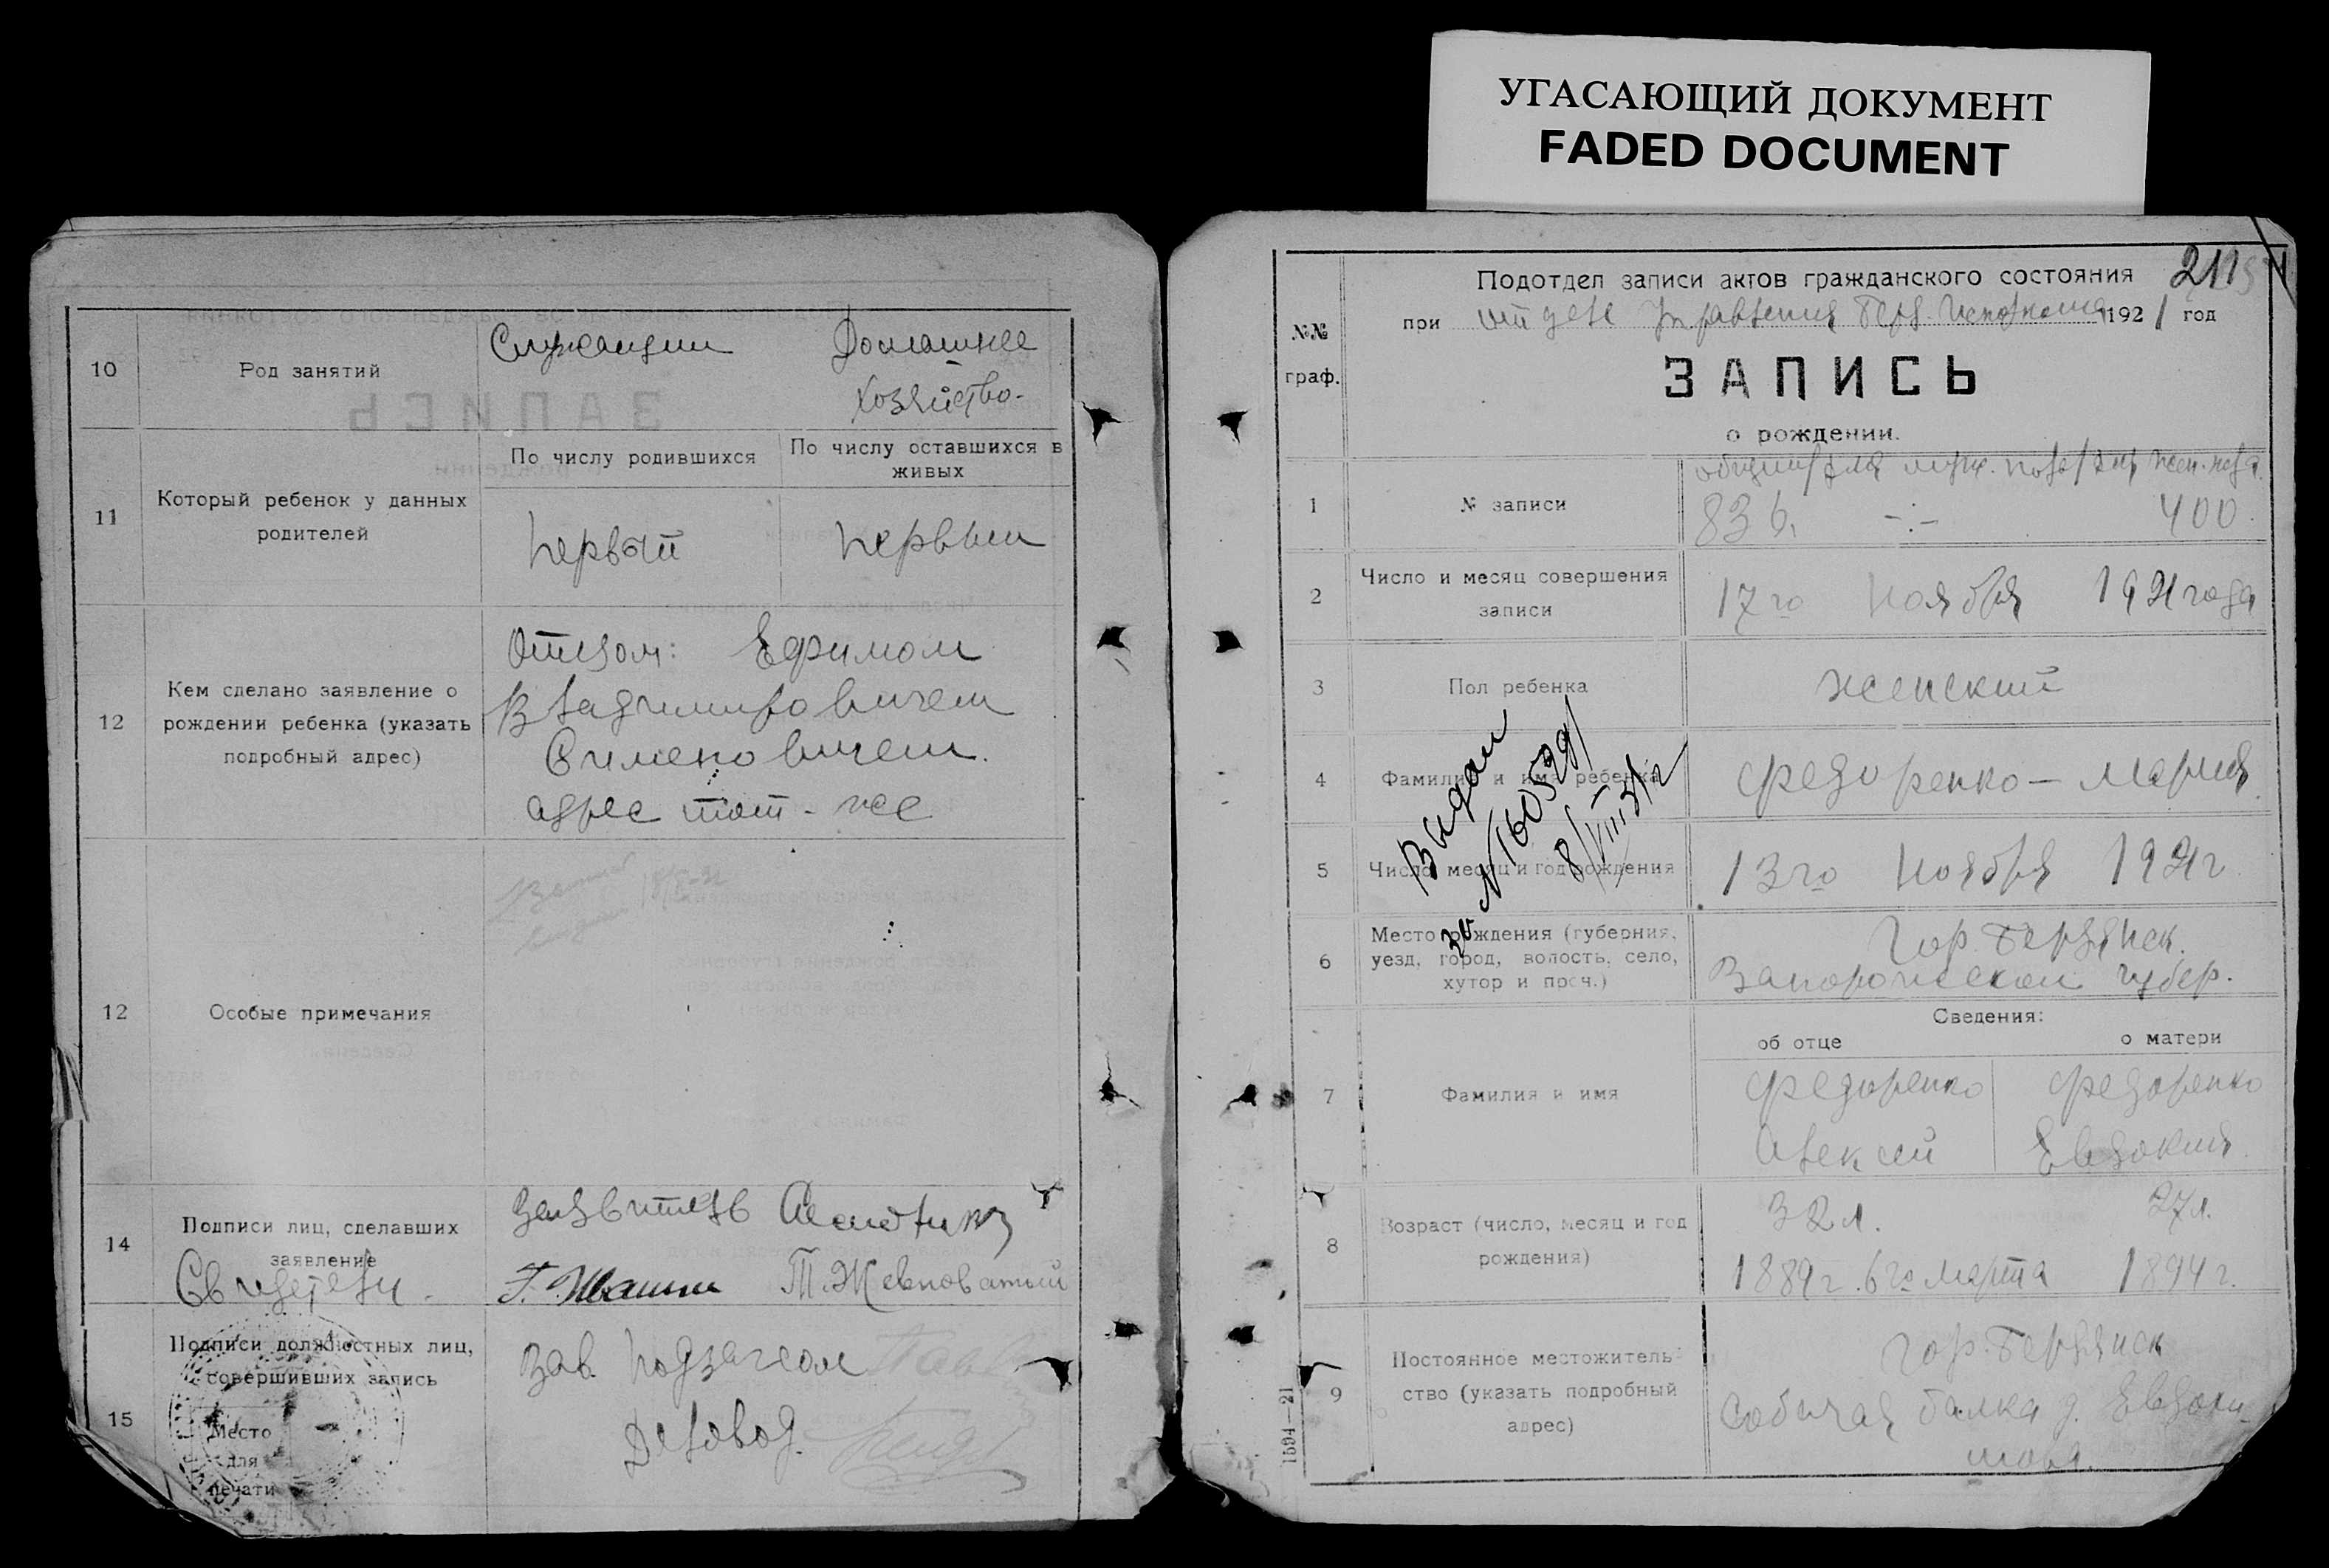 УГАСАЮЩИЙ ДОКУМЕНТ
FADED DOCUMENT
10
Род занятий
Служащий
Домашнее
хозяйство.
11
Который ребенок у данных
родителей
По числу родившихся
По числу оставшихся в
живых
первый
первый
12
Кем сделано заявление о
рождении ребенка (указать
подробный адрес)
Отцом: Ефимом
Владимировичем
Сименовичем.
адрес тот-же
12
Особые примечания
14
Подписи лиц, сделавших
заявление
Свидетели.
Заявитель
Т. Жевноватый
15
Подписи должностных лиц,
совершивших запись
Место
для
печати
Зав. подзагсом
Деловод.
№№
граф.
Подотдел записи актов гражданского состояния
при отделе Управления Берд. Исполкома 1921 год
ЗАПИСЬ
о рождении.
1
№ записи
общий/для муж. пола/для жен. пола.
836. -:- 400.
2
Число и месяц совершения
записи
17го Ноября 1921 года
3
Пол ребенка
женский
4
Фамилия и имя ребенка
Федоренко — Мария
Выдан
за № 605291
8/VIII 31 г
5
Число месяц и год рождения
13го Ноября 1921 г
6
Место рождения (губерния,
уезд, город, волость, село,
хутор и проч.)
Гор. Бердянск.
Запорожской губер.
Сведения:
об отце
о матери
7
Фамилия и имя
Федоренко
Алексей
Федоренко
Евдокия.
8
Возраст (число, месяц и год
рождения)
32 л.
1889 г. 6го Марта
27 л.
1894 г.
9
Постоянное местожитель-
ство (указать подробный
адрес)
Гор. Бердянск
Собачая балка д. Евдоки-
мова.
1594—21